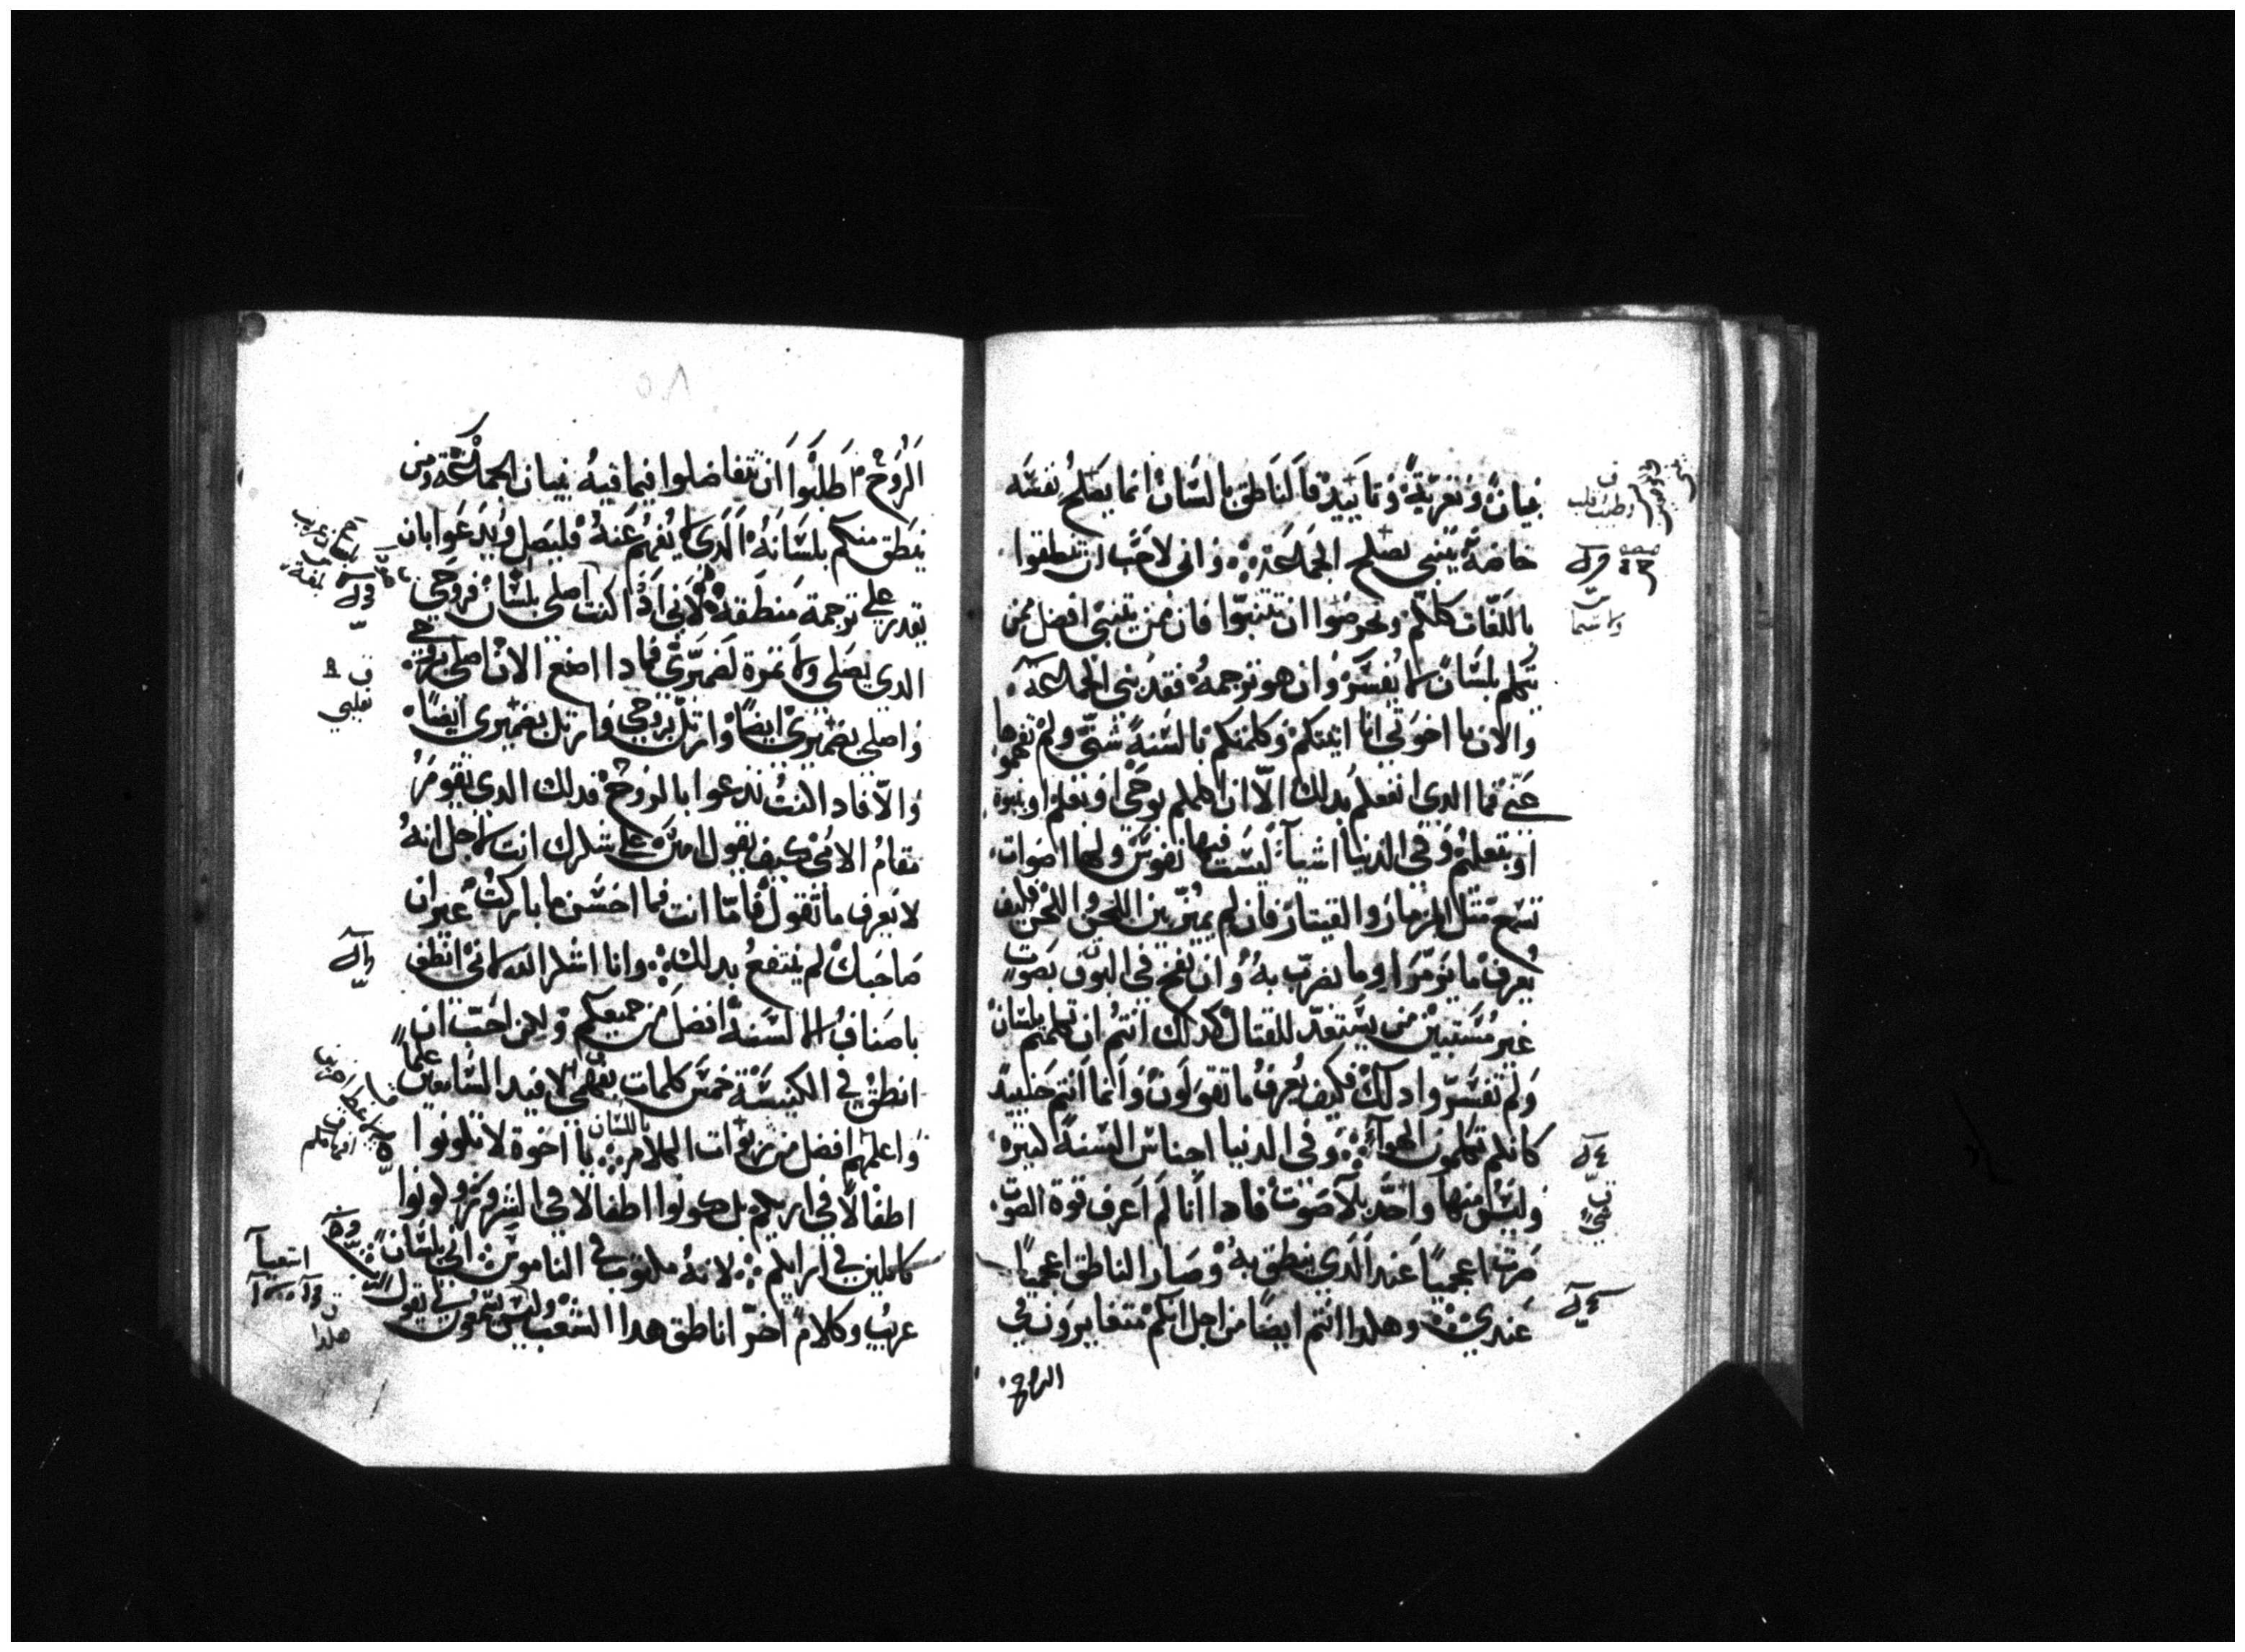 بنيان وتعزية وتاييد فالناطق باللسان انما يصلح نفسه
خاصة يتنبى يصلح الجماعة واني لاحب ان تنطقوا
باللغات كلكم وتحرصوا ان تتنبوا فان من يتنبى افضل ممن
يتكلم بلسان لا يفسر وان هو ترجمه فقد بنى الجماعة
والان يا اخوتي انا اتيتكم وكلمتكم بالسنة شتى ولم تفهموها
عني فما الدي انفعكم بدلك الا ان اكلمكم بوحي او بعلم او بنبوة
او بتعليم وفي الدنيا اشيا ليست فيها نفوس ولها اصوات
تسمع مثل المزمار والقيتار فان لم يميز بين اللحن واللحن فكيف
يعرف ما يزمر او ما يضرب به وان نفخ في البوق بصوت
غير مستبين من يستعد للقتال كدلك انتم ان تكلمتم بلسان
ولم تفسر وادلك فكيف يعرف ما تقولون وانما انتم حينيد
كانكم تكلمون الهوا وفي الدنيا اجناس السنة كثيرة
وليس منها واحد بلا صوت فادا انا لم اعرف قوة الصوت
صرت اعجميا عند الدي ينطق به وصار الناطق اعجميا
عندي وهكدا انتم ايضا من اجل انكم متغايرون في
الروح
٥٨
الروح اطلبوا ان تتفاضلوا فيما فيه بنيان الجماعة ومن
ينطق منكم بلسانه الدي لا يفهم عنه فليصل ويدعوا بان
يقدر علي ترجمة منطقه لاني ادا كنت اصلي بلسان فروحي
الدي يصلي ولا ثمرة لضميري فمادا اصنع الان اصلي بروحي
واصلي بضميري ايضا وارتل بروحي وارتل بضميري ايضا
والا فادا كنت تدعوا بالروح فدلك الدي يقوم
مقام الامي كيف يقول امين علي شكرك انت لاجل انه
لا يعرف ما تقول فاما انت فما احسن ما باركت غير ان
صاحبك لم ينتفع بدلك وانا اشكر الله لاني انطق
باصناف الالسنة افضل من جميعكم ولكن احب ان
انطق في الكنيسة خمس كلمات بفهمي لافيد السامعين علما
واعلمهم افضل من ربوات الكلام باللسان يا اخوة لا تكونوا
اطفالا في ارايكم بل كونوا اطفالا في الشرور وكونوا
كاملين في ارايكم لانه مكتوب في الناموس اني بلسان
غريب وكلام اخر اناطق هدا الشعب وليس يسمعون لي يقول الرب
بقلبي
اشعيا
هكدا